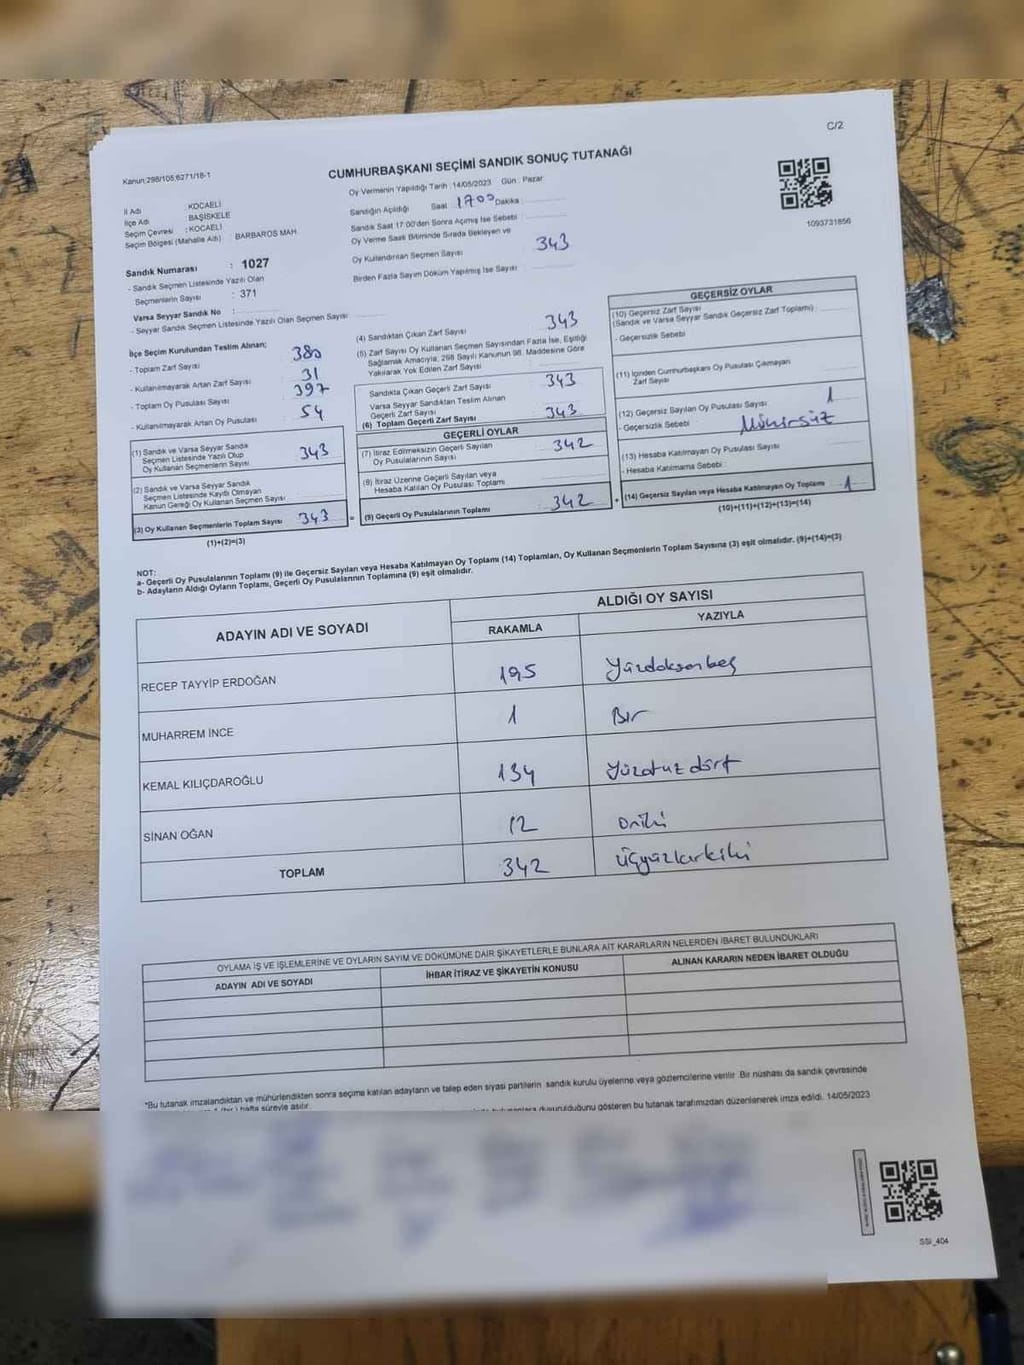 C/2
Kanun:298/105;6271/18-1
CUMHURBAŞKANI SEÇİMİ SANDIK SONUÇ TUTANAĞI
1093731856
İl Adı : KOCAELİ
İlçe Adı : BAŞİSKELE
Seçim Çevresi : KOCAELİ
Seçim Bölgesi (Mahalle Adı) : BARBAROS MAH
Sandık Numarası : 1027
- Sandık Seçmen Listesinde Yazılı Olan
Seçmenlerin Sayısı : 371
Varsa Seyyar Sandık No :
- Seyyar Sandık Seçmen Listesinde Yazılı Olan Seçmen Sayısı :
Oy Vermenin Yapıldığı Tarih : 14/05/2023 Gün : Pazar
Sandığın Açıldığı Saat : 1700 Dakika :
Sandık Saat 17:00'den Sonra Açımış İse Sebebi :
Oy Verme Saati Bitiminde Sırada Bekleyen ve
Oy Kullandırılan Seçmen Sayısı : 343
Birden Fazla Sayım Döküm Yapılmış İse Sayısı :
İlçe Seçim Kurulundan Teslim Alınan;
- Toplam Zarf Sayısı : 380
- Kullanılmayarak Artan Zarf Sayısı : 31
- Toplam Oy Pusulası Sayısı : 397
- Kullanılmayarak Artan Oy Pusulası : 54
(1) Sandık ve Varsa Seyyar Sandık
Seçmen Listesinde Yazılı Olup
Oy Kullanan Seçmenlerin Sayısı : 343
(2) Sandık ve Varsa Seyyar Sandık
Seçmen Listesinde Kayıtlı Olmayan
Kanun Gereği Oy Kullanan Seçmen Sayısı :
(3) Oy Kullanan Seçmenlerin Toplam Sayısı : 343
(1)+(2)=(3)
(4) Sandıktan Çıkan Zarf Sayısı : 343
(5) Zarf Sayısı Oy Kullanan Seçmen Sayısından Fazla İse, Eşitliği
Sağlamak Amacıyla, 298 Sayılı Kanunun 98. Maddesine Göre
Yakılarak Yok Edilen Zarf Sayısı :
Sandıkta Çıkan Geçerli Zarf Sayısı : 343
Varsa Seyyar Sandıktan Teslim Alınan
Geçerli Zarf Sayısı :
(6) Toplam Geçerli Zarf Sayısı : 343
GEÇERLİ OYLAR
(7) İtiraz Edilmeksizin Geçerli Sayılan
Oy Pusulalarının Sayısı : 342
(8) İtiraz Üzerine Geçerli Sayılan veya
Hesaba Katılan Oy Pusulası Toplamı :
= (9) Geçerli Oy Pusulalarının Toplamı : 342
GEÇERSİZ OYLAR
(10) Geçersiz Zarf Sayısı
(Sandık ve Varsa Seyyar Sandık Geçersiz Zarf Toplamı) :
- Geçersizlik Sebebi :
(11) İçinden Cumhurbaşkanı Oy Pusulası Çıkmayan
Zarf Sayısı :
(12) Geçersiz Sayılan Oy Pusulası Sayısı : 1
- Geçersizlik Sebebi : Mühürsüz
(13) Hesaba Katılmayan Oy Pusulası Sayısı :
- Hesaba Katılmama Sebebi :
+ (14) Geçersiz Sayılan veya Hesaba Katılmayan Oy Toplamı : 1
(10)+(11)+(12)+(13)=(14)
NOT:
a- Geçerli Oy Pusulalarının Toplamı (9) ile Geçersiz Sayılan veya Hesaba Katılmayan Oy Toplamı (14) Toplamları, Oy Kullanan Seçmenlerin Toplam Sayısına (3) eşit olmalıdır. (9)+(14)=(3)
b- Adayların Aldığı Oyların Toplamı, Geçerli Oy Pusulalarının Toplamına (9) eşit olmalıdır.
ADAYIN ADI VE SOYADI ALDIĞI OY SAYISI
RAKAMLA YAZIYLA
RECEP TAYYİP ERDOĞAN 195 Yüzdoksanbeş
MUHARREM İNCE 1 Bir
KEMAL KILIÇDAROĞLU 134 Yüzotuzdört
SİNAN OĞAN 12 Oniki
TOPLAM 342 Üçyüzkırkiki
OYLAMA İŞ VE İŞLEMLERİNE VE OYLARIN SAYIM VE DÖKÜMÜNE DAİR ŞİKAYETLERLE BUNLARA AİT KARARLARIN NELERDEN İBARET BULUNDUKLARI
ADAYIN ADI VE SOYADI İHBAR İTİRAZ VE ŞİKAYETİN KONUSU ALINAN KARARIN NEDEN İBARET OLDUĞU
*Bu tutanak imzalandıktan ve mühürlendikten sonra seçime katılan adayların ve talep eden siyasi partilerin sandık kurulu üyelerine veya gözlemcilerine verilir. Bir nüshası da sandık çevresinde
hafta süreyle asılır.
duyurulduğunu gösteren bu tutanak tarafımızdan düzenlenerek imza edildi. 14/05/2023
SSI_404